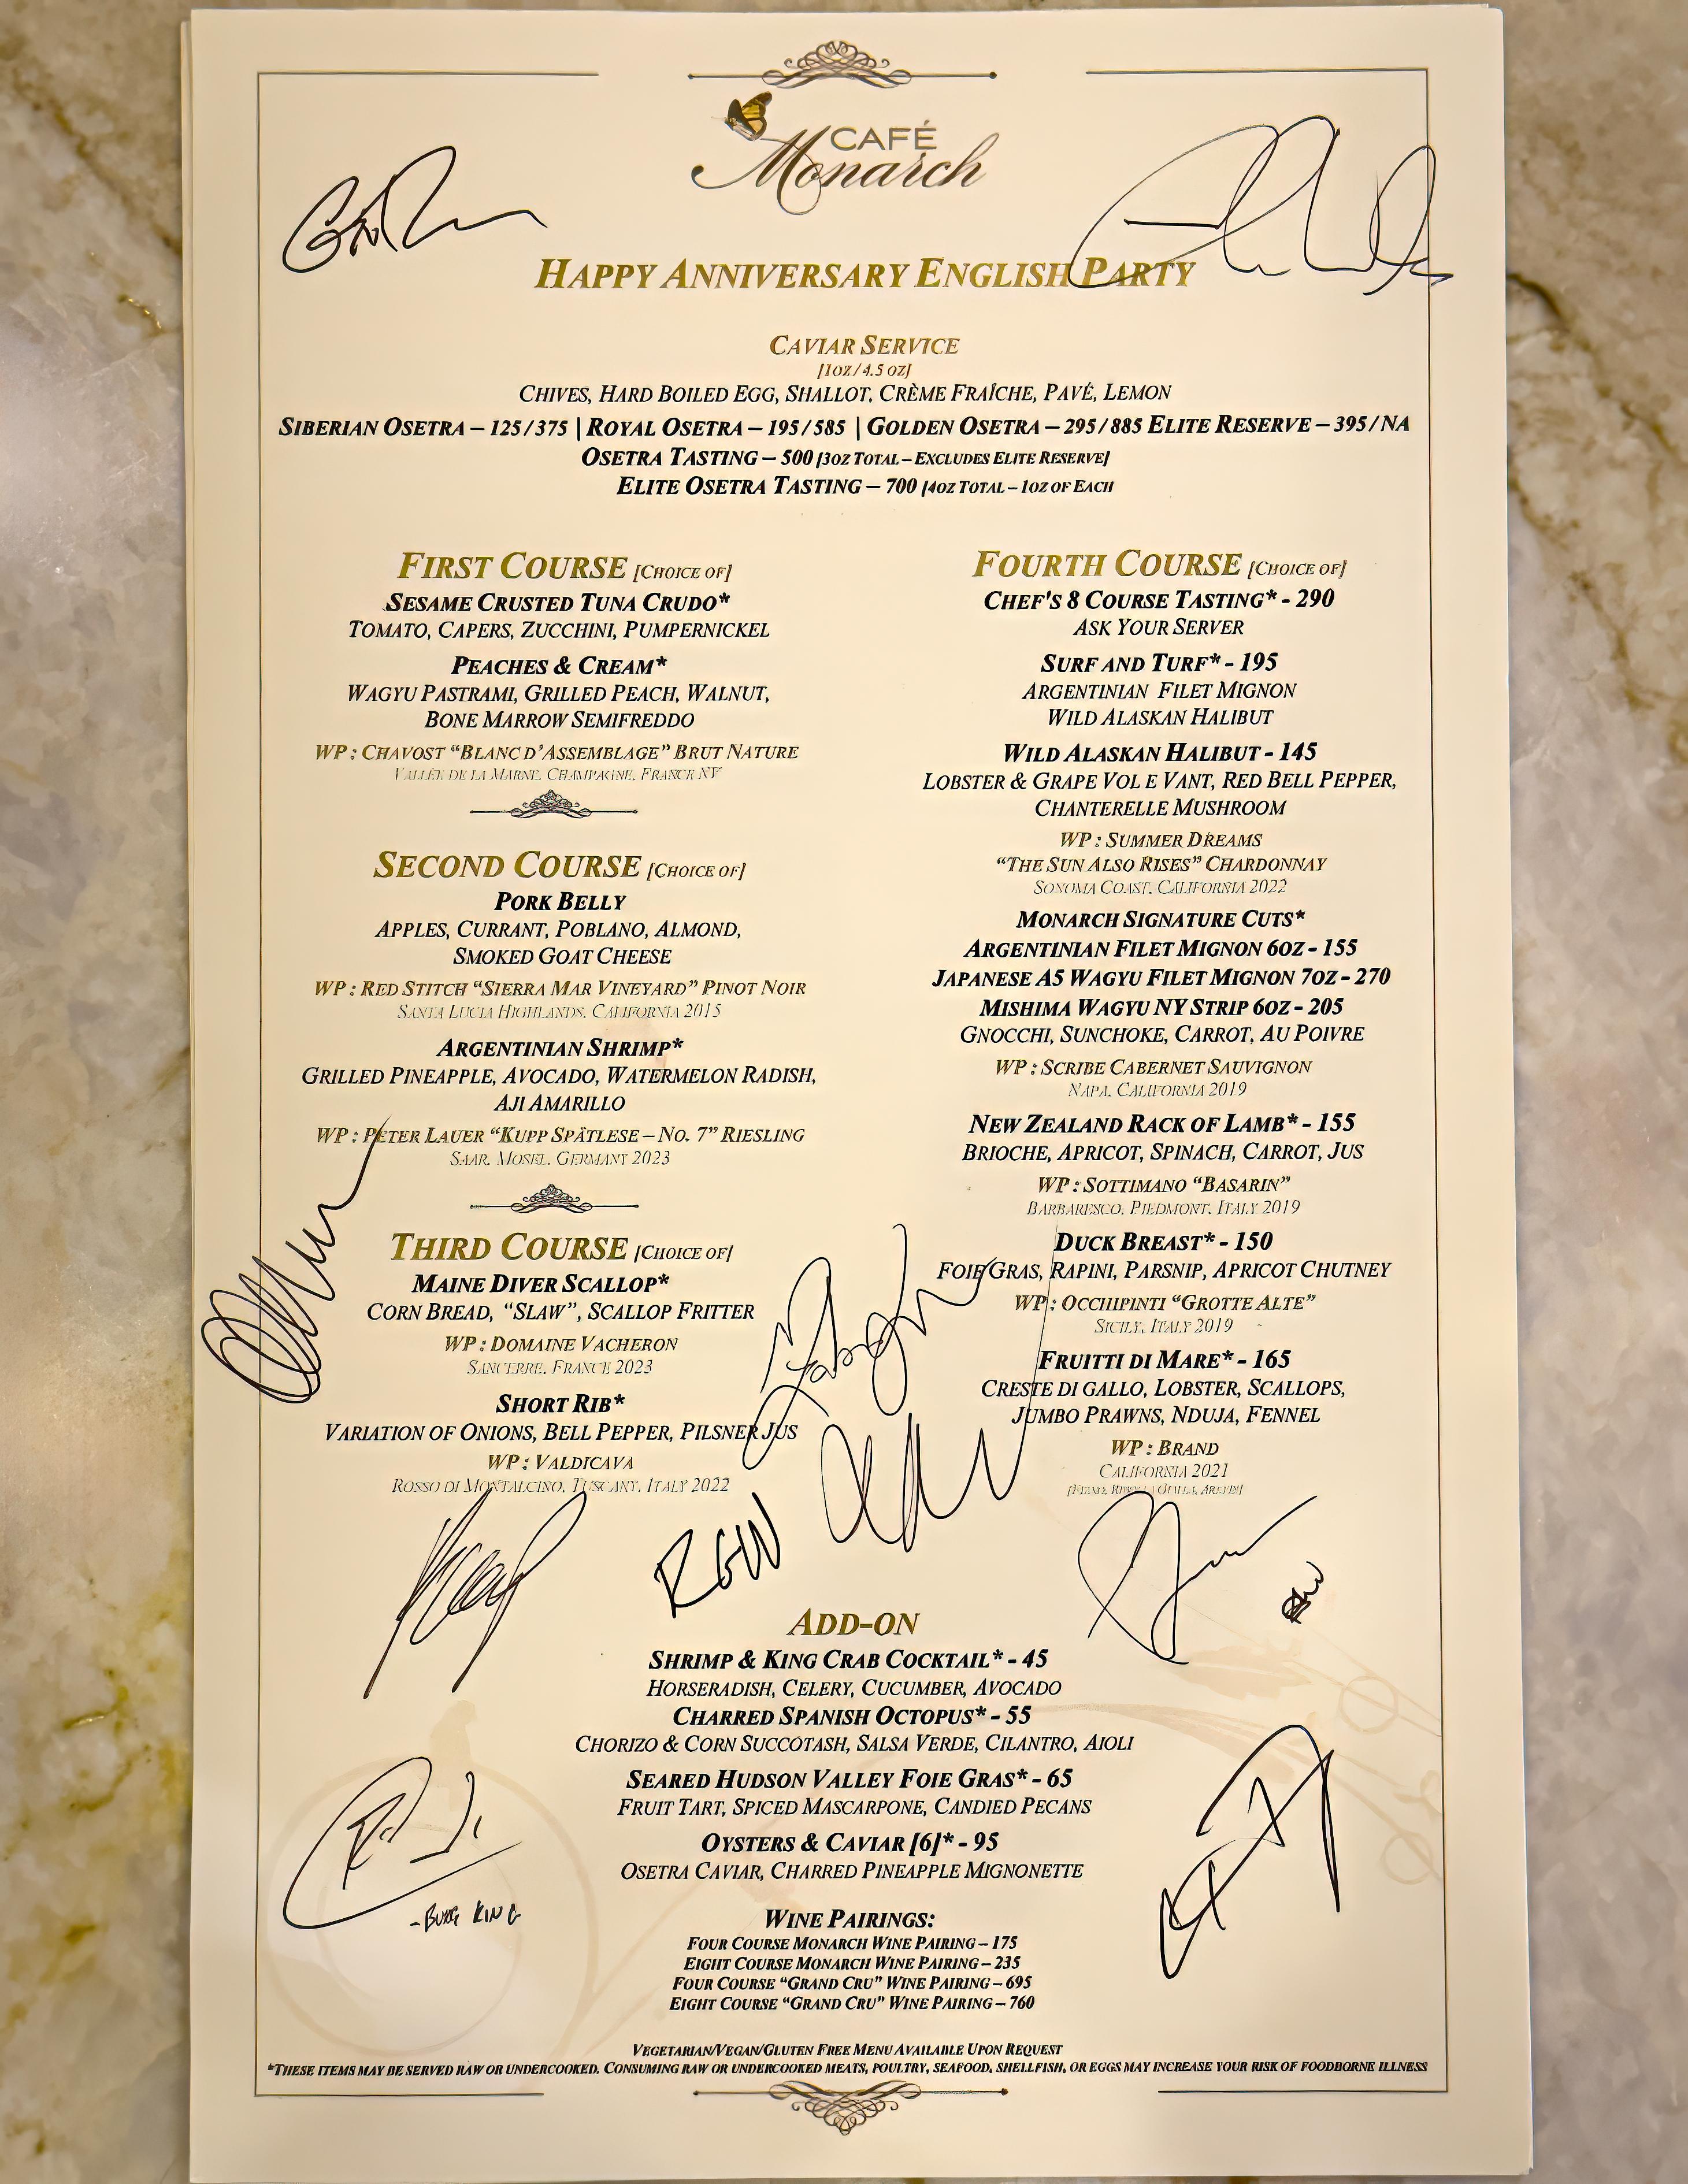 CAFÉ
Monarch
HAPPY ANNIVERSARY ENGLISH PARTY
CAVIAR SERVICE
[1OZ/4.5 OZ]
CHIVES, HARD BOILED EGG, SHALLOT, CRÈME FRAÎCHE, PAVÉ, LEMON
SIBERIAN OSETRA – 125/375 | ROYAL OSETRA – 195/585 | GOLDEN OSETRA – 295/885 ELITE RESERVE – 395/NA
OSETRA TASTING – 500 [3OZ TOTAL – EXCLUDES ELITE RESERVE]
ELITE OSETRA TASTING – 700 [4OZ TOTAL – 1OZ OF EACH
FIRST COURSE [CHOICE OF]
SESAME CRUSTED TUNA CRUDO*
TOMATO, CAPERS, ZUCCHINI, PUMPERNICKEL
PEACHES & CREAM*
WAGYU PASTRAMI, GRILLED PEACH, WALNUT,
BONE MARROW SEMIFREDDO
WP: CHAVOST “BLANC D’ASSEMBLAGE” BRUT NATURE
VALLÉE DE LA MARNE, CHAMPAGNE, FRANCE NV
SECOND COURSE [CHOICE OF]
PORK BELLY
APPLES, CURRANT, POBLANO, ALMOND,
SMOKED GOAT CHEESE
WP: RED STITCH “SIERRA MAR VINEYARD” PINOT NOIR
SANTA LUCIA HIGHLANDS, CALIFORNIA 2015
ARGENTINIAN SHRIMP*
GRILLED PINEAPPLE, AVOCADO, WATERMELON RADISH,
AJI AMARILLO
WP: PETER LAUER “KUPP SPÄTLESE – NO. 7” RIESLING
SAAR, MOSEL, GERMANY 2023
THIRD COURSE [CHOICE OF]
MAINE DIVER SCALLOP*
CORN BREAD, “SLAW”, SCALLOP FRITTER
WP: DOMAINE VACHERON
SANCERRE, FRANCE 2023
SHORT RIB*
VARIATION OF ONIONS, BELL PEPPER, PILSNER JUS
WP: VALDICAVA
ROSSO DI MONTALCINO, TUSCANY, ITALY 2022
FOURTH COURSE [CHOICE OF]
CHEF'S 8 COURSE TASTING* - 290
ASK YOUR SERVER
SURF AND TURF* - 195
ARGENTINIAN FILET MIGNON
WILD ALASKAN HALIBUT
WILD ALASKAN HALIBUT - 145
LOBSTER & GRAPE VOL E VANT, RED BELL PEPPER,
CHANTERELLE MUSHROOM
WP: SUMMER DREAMS
“THE SUN ALSO RISES” CHARDONNAY
SONOMA COAST, CALIFORNIA 2022
MONARCH SIGNATURE CUTS*
ARGENTINIAN FILET MIGNON 6OZ - 155
JAPANESE A5 WAGYU FILET MIGNON 7OZ - 270
MISHIMA WAGYU NY STRIP 6OZ - 205
GNOCCHI, SUNCHOKE, CARROT, AU POIVRE
WP: SCRIBE CABERNET SAUVIGNON
NAPA, CALIFORNIA 2019
NEW ZEALAND RACK OF LAMB* - 155
BRIOCHE, APRICOT, SPINACH, CARROT, JUS
WP: SOTTIMANO “BASARIN”
BARBARESCO, PIEDMONT, ITALY 2019
DUCK BREAST* - 150
FOIE GRAS, RAPINI, PARSNIP, APRICOT CHUTNEY
WP: OCCHIPINTI “GROTTE ALTE”
SICILY, ITALY 2019
FRUITTI DI MARE* - 165
CRESTE DI GALLO, LOBSTER, SCALLOPS,
JUMBO PRAWNS, NDUJA, FENNEL
WP: BRAND
CALIFORNIA 2021
RGW
ADD-ON
SHRIMP & KING CRAB COCKTAIL* - 45
HORSERADISH, CELERY, CUCUMBER, AVOCADO
CHARRED SPANISH OCTOPUS* - 55
CHORIZO & CORN SUCCOTASH, SALSA VERDE, CILANTRO, AIOLI
SEARED HUDSON VALLEY FOIE GRAS* - 65
FRUIT TART, SPICED MASCARPONE, CANDIED PECANS
OYSTERS & CAVIAR [6]* - 95
OSETRA CAVIAR, CHARRED PINEAPPLE MIGNONETTE
KING
WINE PAIRINGS:
FOUR COURSE MONARCH WINE PAIRING – 175
EIGHT COURSE MONARCH WINE PAIRING – 235
FOUR COURSE “GRAND CRU” WINE PAIRING – 695
EIGHT COURSE “GRAND CRU” WINE PAIRING – 760
VEGETARIAN/VEGAN/GLUTEN FREE MENU AVAILABLE UPON REQUEST
*THESE ITEMS MAY BE SERVED RAW OR UNDERCOOKED. CONSUMING RAW OR UNDERCOOKED MEATS, POULTRY, SEAFOOD, SHELLFISH, OR EGGS MAY INCREASE YOUR RISK OF FOODBORNE ILLNESS